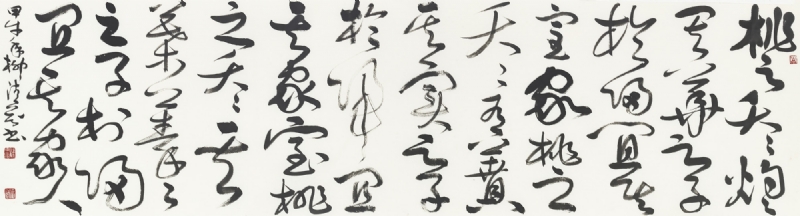 桃之夭夭灼
其華之子
於歸宜其
室家桃之
夭夭有蕡
其實之子
於歸宜
其家室桃
之夭夭其
葉蓁蓁
之子於歸
宜其家人
甲午 書